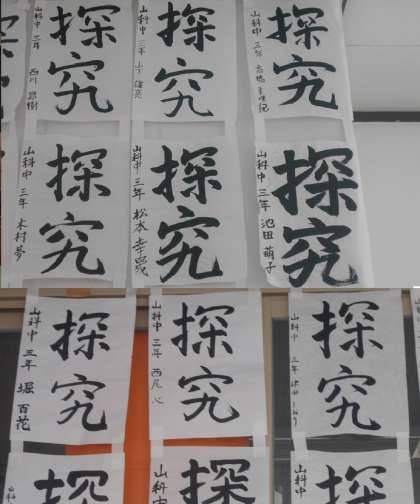 探究
山科中 三年 西川
探究
山科中 三年 山下
探究
山科中 三年
探究
山科中 三年 木村 夢
探究
山科中 三年 松本 幸
探究
山科中 三年 池田 萌子
探究
山科中 三年 堀 百花
探究
山科中 三年 西尾 心
探究
山科中 三年 津田
探
山科中
探
山科中
探
山科中